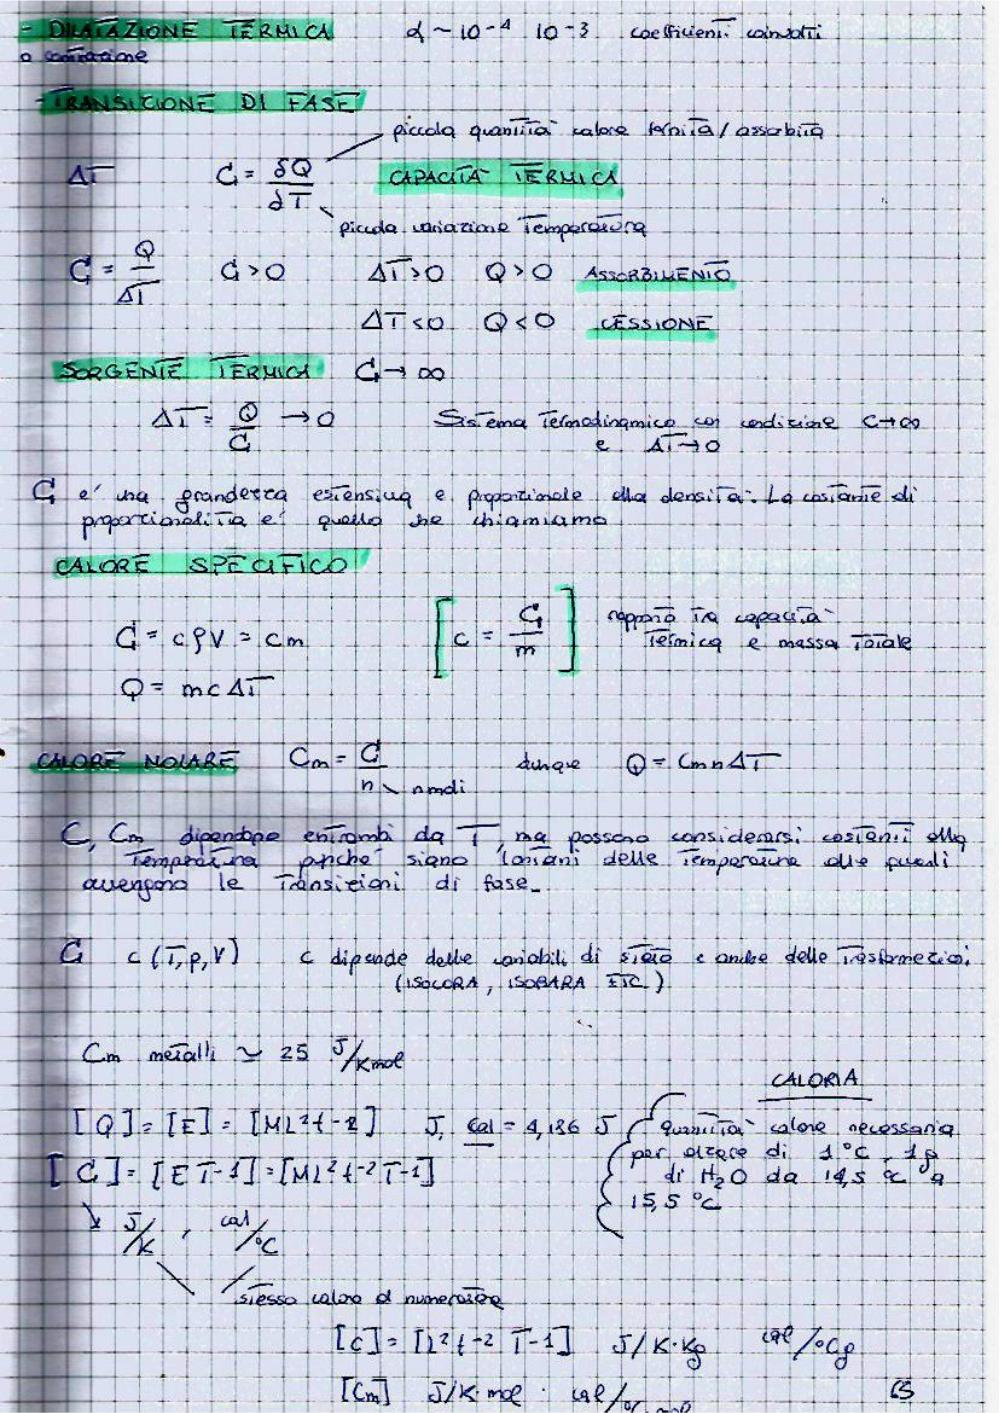 - DILATAZIONE TERMICA α ~ 10-4 10-3 coefficienti coinvolti
o contrazione
- TRANSIZIONE DI FASE
piccola quantità calore fornita / assorbita
ΔT C = δQ/dT CAPACITÀ TERMICA
piccola variazione Temperatura
C = Q/ΔT C > 0 ΔT > 0 Q > 0 ASSORBIMENTO
ΔT < 0 Q < 0 CESSIONE
SORGENTE TERMICA C → ∞
ΔT = Q/C → 0 Sistema Termodinamico con condizione C → ∞
e ΔT → 0
C e' una grandezza estensiva e proporzionale alla densità. La costante di
proporzionalità e' quello che chiamiamo
CALORE SPECIFICO
C = cρV = cm [c = C/m] rapporto tra capacità
Termica e massa Totale
Q = mcΔT
CALORE MOLARE Cm = C/n nmoli dunque Q = CmnΔT
C, Cm dipendono entrambi da T, ma possono considerarsi costanti alla
Temperatura purche' siano lontani delle Temperature alle quali
avvengono le Transizioni di fase.
C c (T, p, V) c dipende dalle variabili di stato e anche delle Trasformazioni
(ISOCORA, ISOBARA ETC.)
Cm metalli ≃ 25 J/Kmol
CALORIA
[Q] = [E] = [ML²t-2] J, cal = 4,186 J quantità calore necessaria
per alzare di 1°C, 1g
[C] = [E T-1] = [ML²t-2T-1] di H₂O da 14,5 °C a
15,5 °C
J/K , cal/°C
stesso valore al numeratore
[c] = [L²t-2 T-1] J/K·Kg cal/°Cg
[Cm] J/K·mol cal/°C mol
65